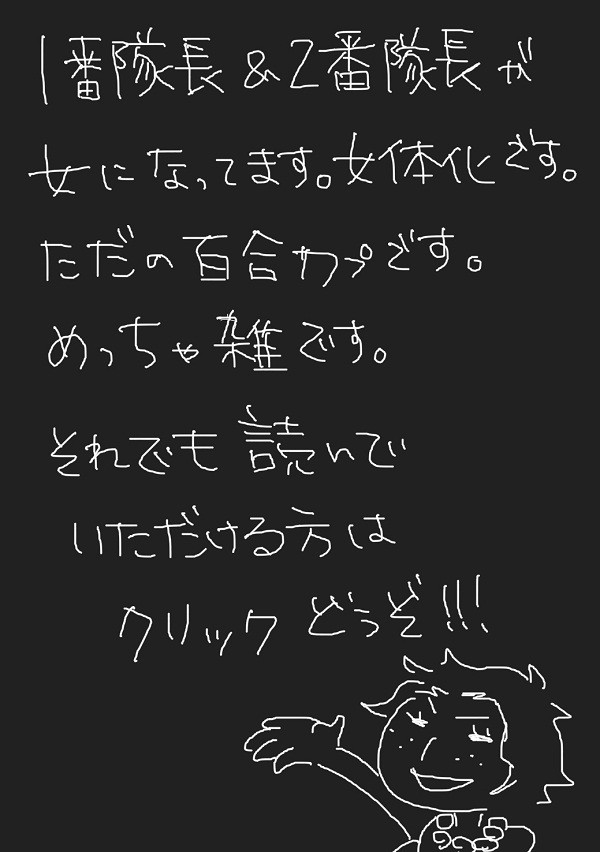 1番隊長&2番隊長が
女になってます。女体化です。
ただの百合カプです。
めっちゃ雑です。
それでも読いで
いただける方は
クリックどうぞ!!!